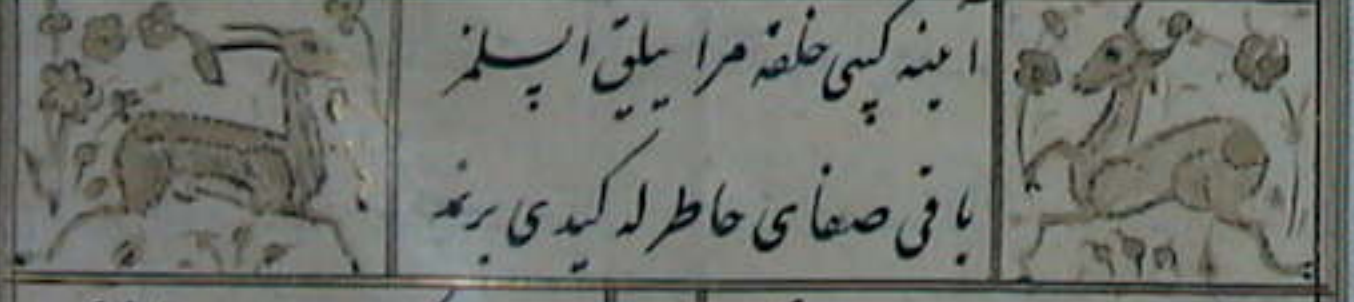 آیینه کبی خلقه مرا ییلق ایسلمز
باقی صفای خاطر له کیدی برند